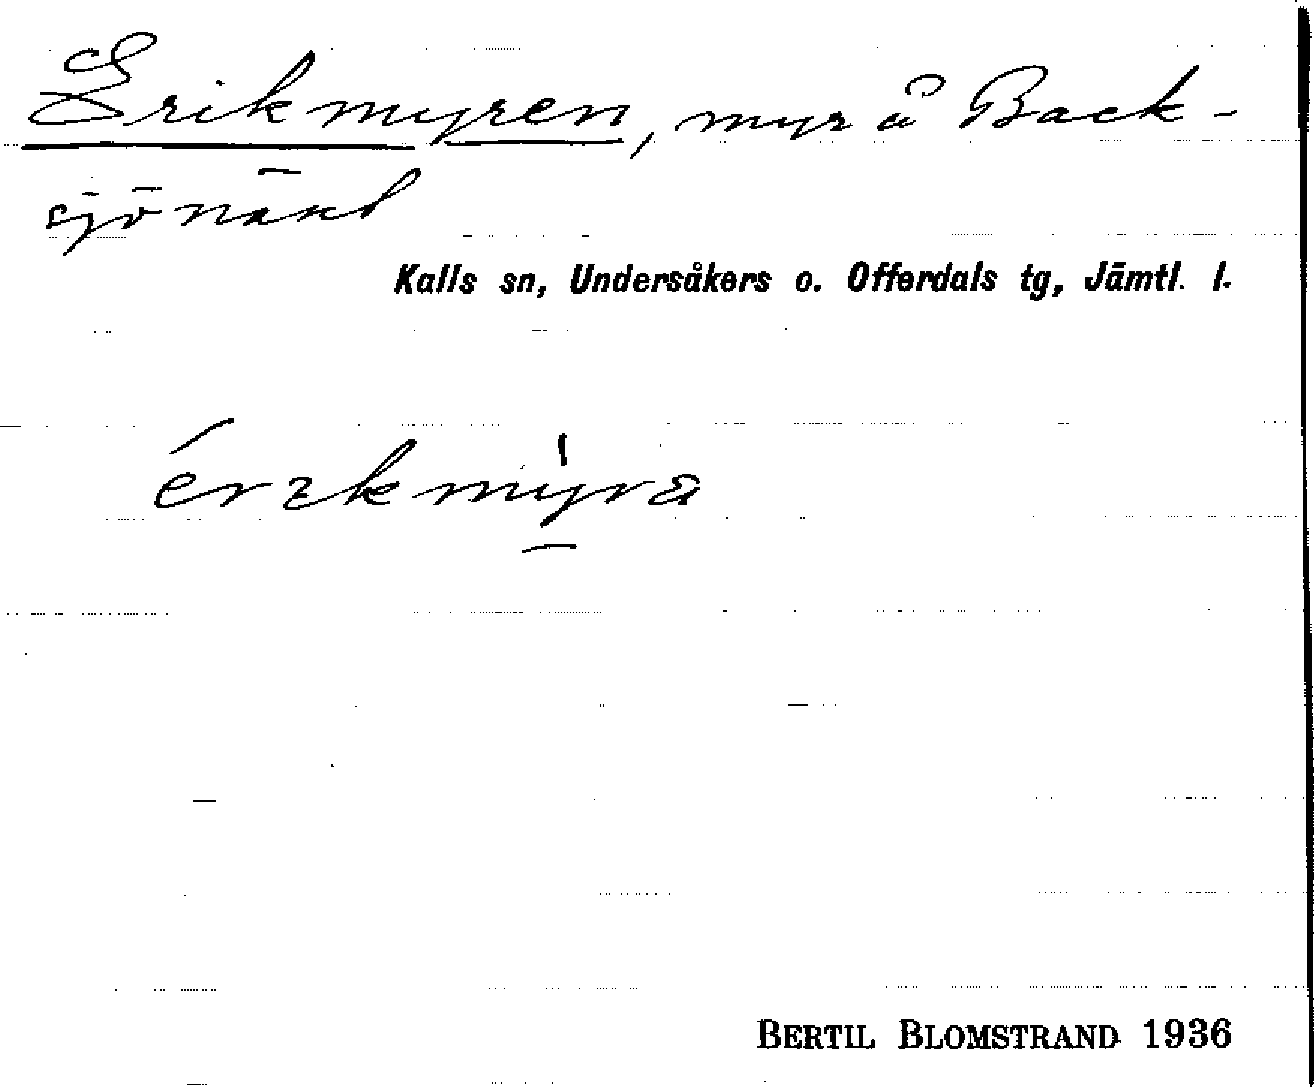 Erikmyren, myr å Back-
sjönäset
Kalls sn, Undersåkers o. Offerdals tg, Jämtl. l.
BERTIL BLOMSTRAND 1936